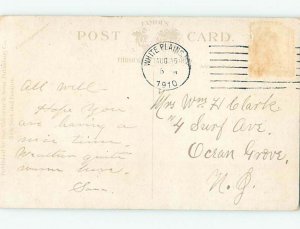 FAMOUS
POST CARD.
WHITE PLAINS
AUG 15
1910
All well
Hope you
are having a
nice time.
Weather quite
warm here.
Mrs Wm H Clarke
#4 Surf Ave.
Ocean Grove,
N. J.